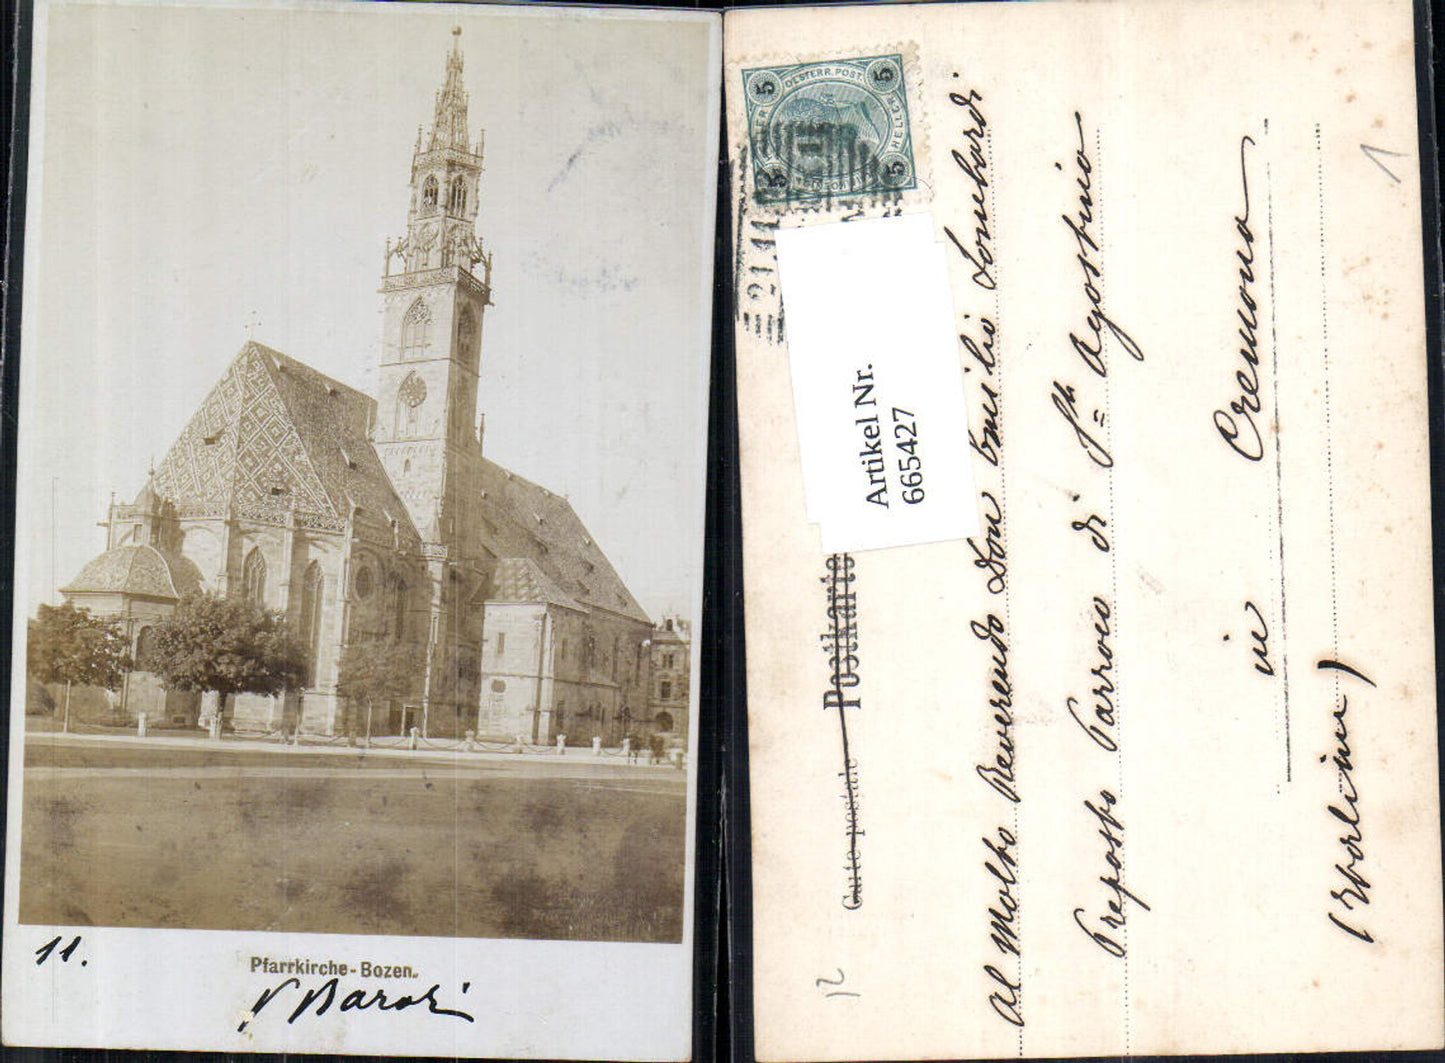 11.
Pfarrkirche - Bozen.
V Barori
5 OESTERR. POST. 5
HELLER
5 5
21.11
Artikel Nr.
665427
Carte postale — Postkarte
Al Molto Reverendo Don Emilio Lombardi
Preposto Parroco di St. Agostino
in Cremona
(Italien)
1